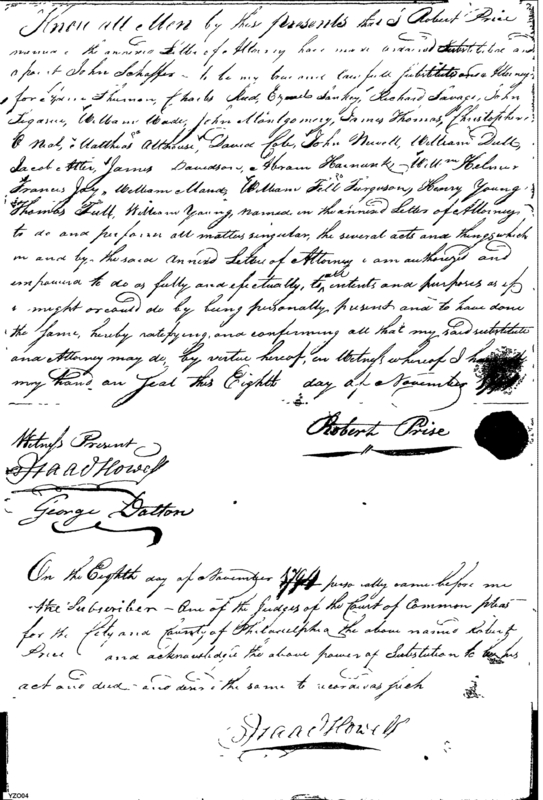 Know all Men by these presents that I Robert Prise
in the annexed Letter of Attorney have made ordained Substituted and
apoint John Schaffer to be my true and lawfull Substitute and Attorney
for Thurman, Charles Rud, Sankey, Richard Savage, John
William Wade, John Montgomery, James Thomas, Christopher
O Neal, Matthias Althouse, David Cole, John Newell, William Dull
Jacob Atter, James Davidson, Abram Hannunk, Wm Helmer
Francis Joly, William Maund, William Till Furguson, Henry Young
Thomas Tull, William Young, named in the annexed Letter of Attorney
to do and perform all matters singular, the several acts and things which
in and by the said annexed Letter of Attorney i am authorized and
empowered to do as fully and efectually, to all intents and purposes as if
i might or could do by being personally present and to have done
the same, hereby ratefying, and confirming all that my said substitute
and Attorney may do, by virtue hereof, in Witness whereof I have
my hand an Seal this Eighth day of November
Witness Present
Robert Prise
Isaac Howell
George Dalton
On the Eighth day of November 1794 personally came before me
the Subscriber - One of the Judges of the Court of Common pleas
for the City and County of Philadelphia the above named Robert
Prise and acknowledged the above power of Substitution to be his
act and deed and the same to recorded as such
Isaac Howell
YZO04